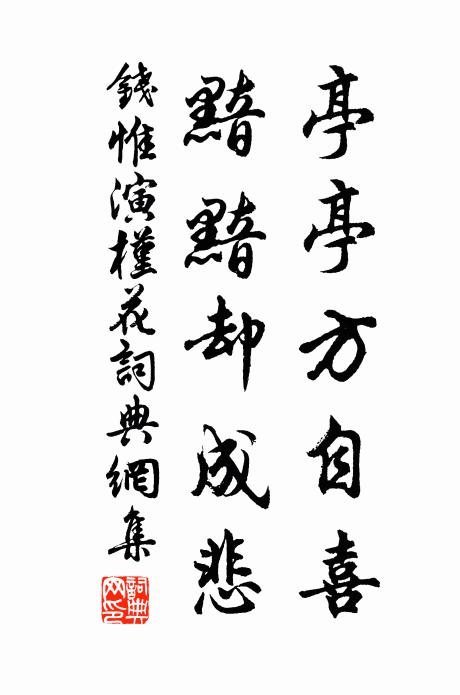 亭亭方自喜
黯黯却成悲
錢惟演槿花詞典網集
詞典
网印